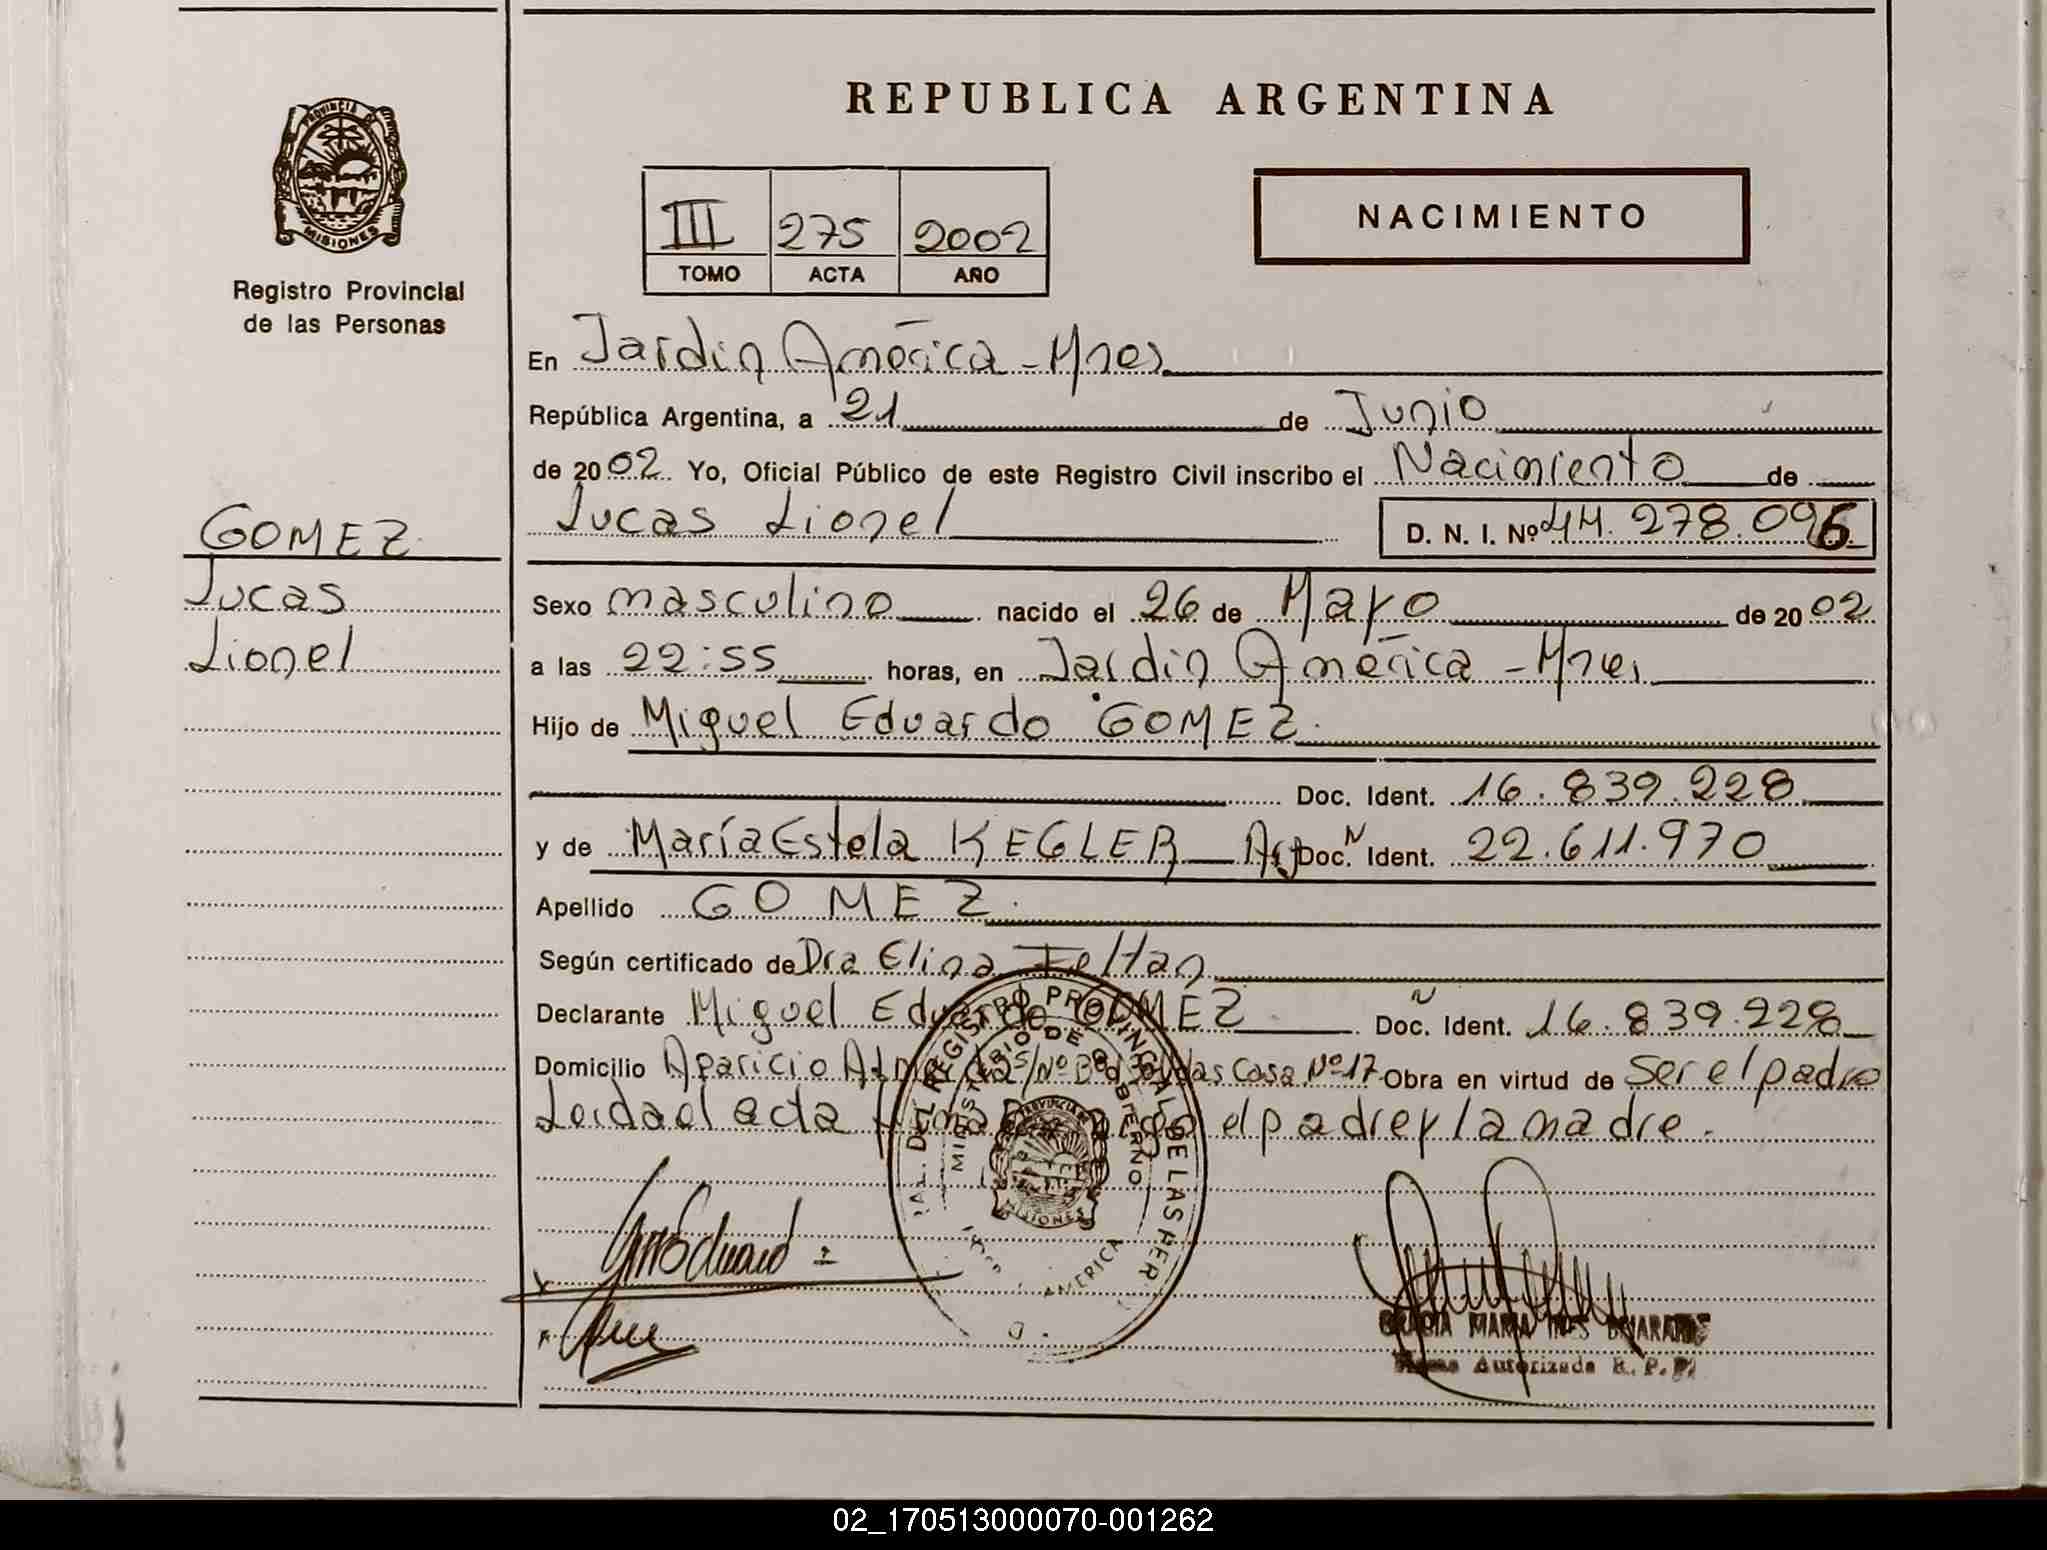 REPUBLICA ARGENTINA
PROVINCIA DE MISIONES
Registro Provincial
de las Personas
III 275 2002
TOMO ACTA AÑO
NACIMIENTO
En Jardin América - Mnes
República Argentina, a 21 de Junio
de 2002. Yo, Oficial Público de este Registro Civil inscribo el Nacimiento de
Lucas Lionel D. N. I. Nº 44.278.096
GOMEZ
Lucas
Lionel
Sexo masculino nacido el 26 de Mayo de 2002
a las 22:55 horas, en Jardin América - Mnes
Hijo de Miguel Eduardo GOMEZ.
Doc. Ident. 16.839.228
y de María Estela KEGLER Arg Doc. Ident. 22.611.970
Apellido GOMEZ.
Según certificado de Dra Elina
Declarante Miguel Eduardo GOMEZ Doc. Ident. 16.839.228
Domicilio Aparicio S/Nº Casa Nº 17 Obra en virtud de Ser el padre
Leida el acta el padre y la madre.
DEL REGISTRO PROVINCIAL DE LAS PER
MINISTERIO DE GOBIERNO
PROVINCIA
MISIONES
AMERICA
MARIA INES
Firma Autorizada R. P. P.
02_170513000070-001262